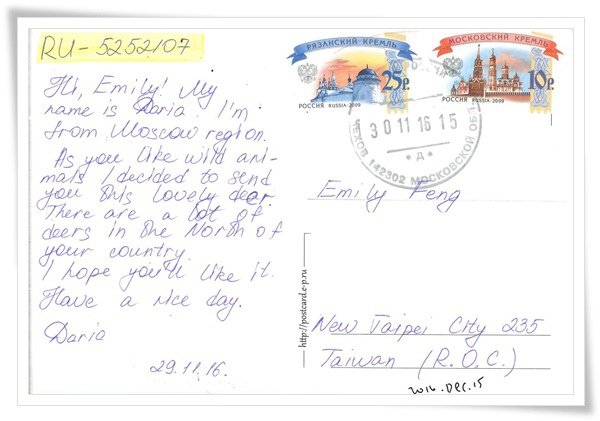 RU-5252107
Hi, Emily! My
name is Daria. I'm
from Moscow region.
As you like wild ani-
mals I decided to send
you this lovely dear.
There are a lot of
deers in the North of
your country.
I hope you'll like it.
Have a nice day.
Daria
29.11.16.
РЯЗАНСКИЙ КРЕМЛЬ
25р.
РОССИЯ RUSSIA·2009
МОСКОВСКИЙ КРЕМЛЬ
10р.
РОССИЯ RUSSIA·2009
30 11 16 15
* Д *
ЧЕХОВ 142302 МОСКОВСКОЙ ОБЛ
Emily Feng
http://postcard.e-p.ru
New Taipei City 235
Taiwan (R.O.C.)
2016.Dec.15